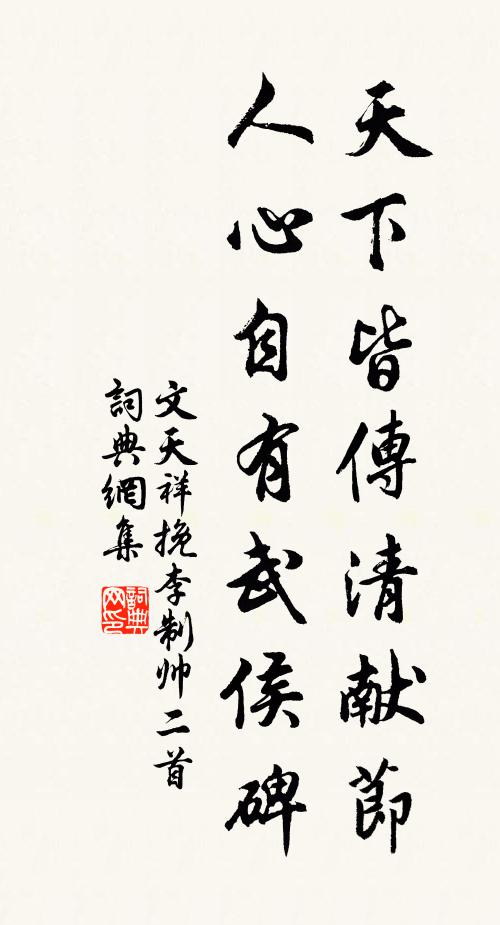 天下皆傳清献節
人心自有武侯碑
文天祥挽李制帅二首
詞典網集
詞典网印